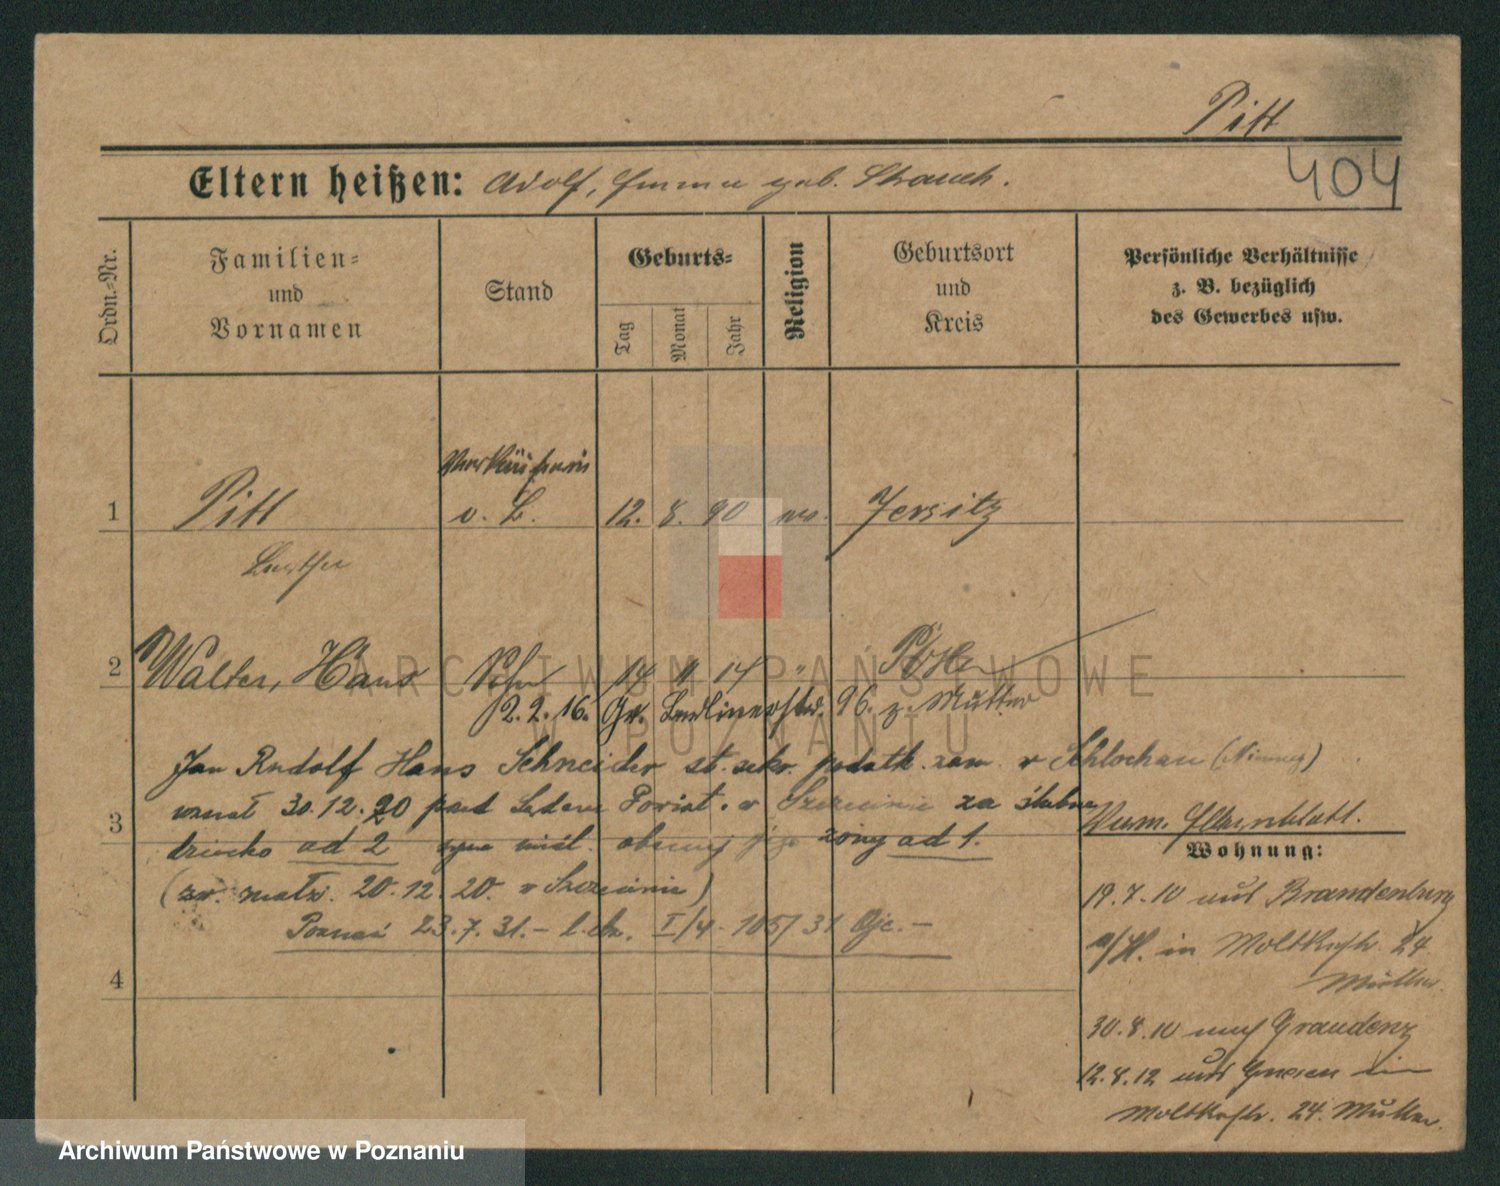 Pitt
404
Eltern heißen: Adolf, Emma geb. Strauch.
Ordn.-Nr.
Familien- und Vornamen
Stand
Geburts-
Tag
Monat
Jahr
Religion
Geburtsort und Kreis
Persönliche Verhältnisse z. B. bezüglich des Gewerbes usw.
Verkäuferin
1 Pitt o. B. 12. 8. 90 Jersitz
2 Walter, Hans Sohn 14 11 14 " Posen
2.2.16. Gr. Berlinerstr. 96. z. Mutter
Jan Rudolf Hans Schneider st. sekr. podatk. zam. w Schlochau (Niemcy)
uznał 30.12.20 przed Sądem Powiat. w Szczecinie za ślubne
3 dziecko ad 2 obecnej jego żony ad 1.
(zw. małż. 20.12.20. w Szczecinie)
Poznań 23.7.31.- I/4 105/31
4
Verm. Elternblatt.
Wohnung:
19.7.10 aus Brandenburg
a/H. in Moltkestr. 24
Mutter.
30.8.10 nach Graudenz
12.8.12 aus Gnesen in
Moltkestr. 24. Mutter.
ARCHIWUM PAŃSTWOWE
W POZNANIU
Archiwum Państwowe w Poznaniu